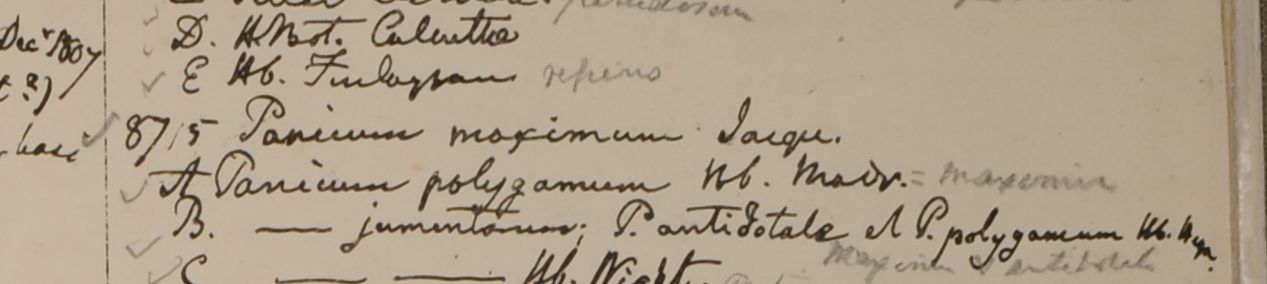 Decr 1807
D. H. Bot. Calcutta
E Hb. Finlayson repens
t ?)
8715 Panicum maximum Jacqu.
base
A Panicum polygamum Hb. Madr. = maximum
B. — jumentorum; P. antidotale et P. polygamum Hb. Heyn.
maximum & antidotale
C — — Hb. Wight